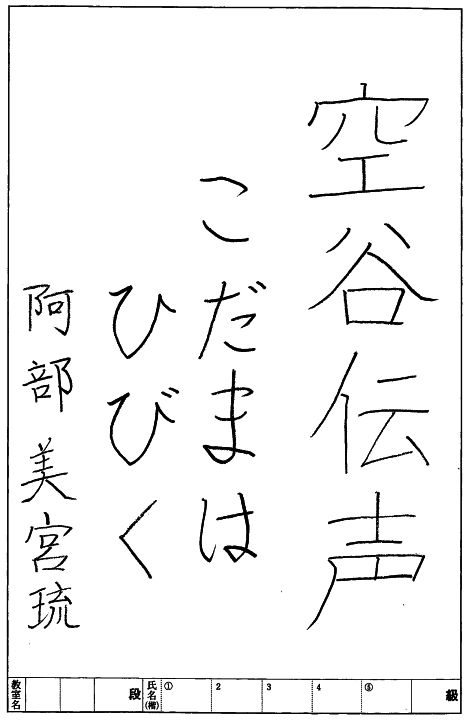 空谷伝声
こだまは
ひびく
阿部美宮琉
級 ⑤ 4 3 2 ① 氏名(楷) 段 教室名